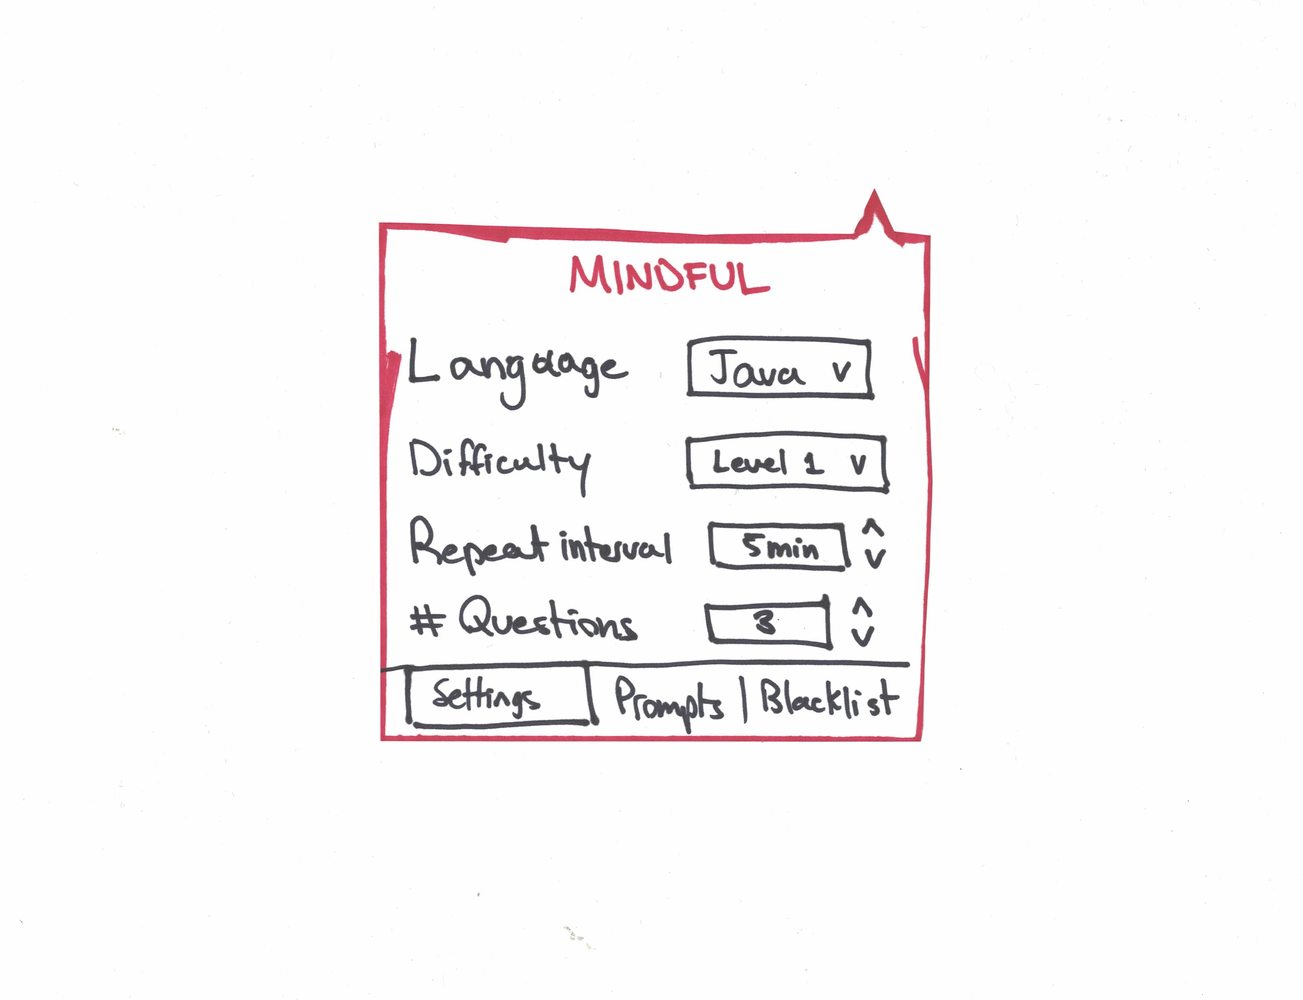 MINDFUL
Language Java v
Difficulty Level 1 v
Repeat interval 5min ^ v
# Questions 3 ^ v
Settings Prompts | Blacklist